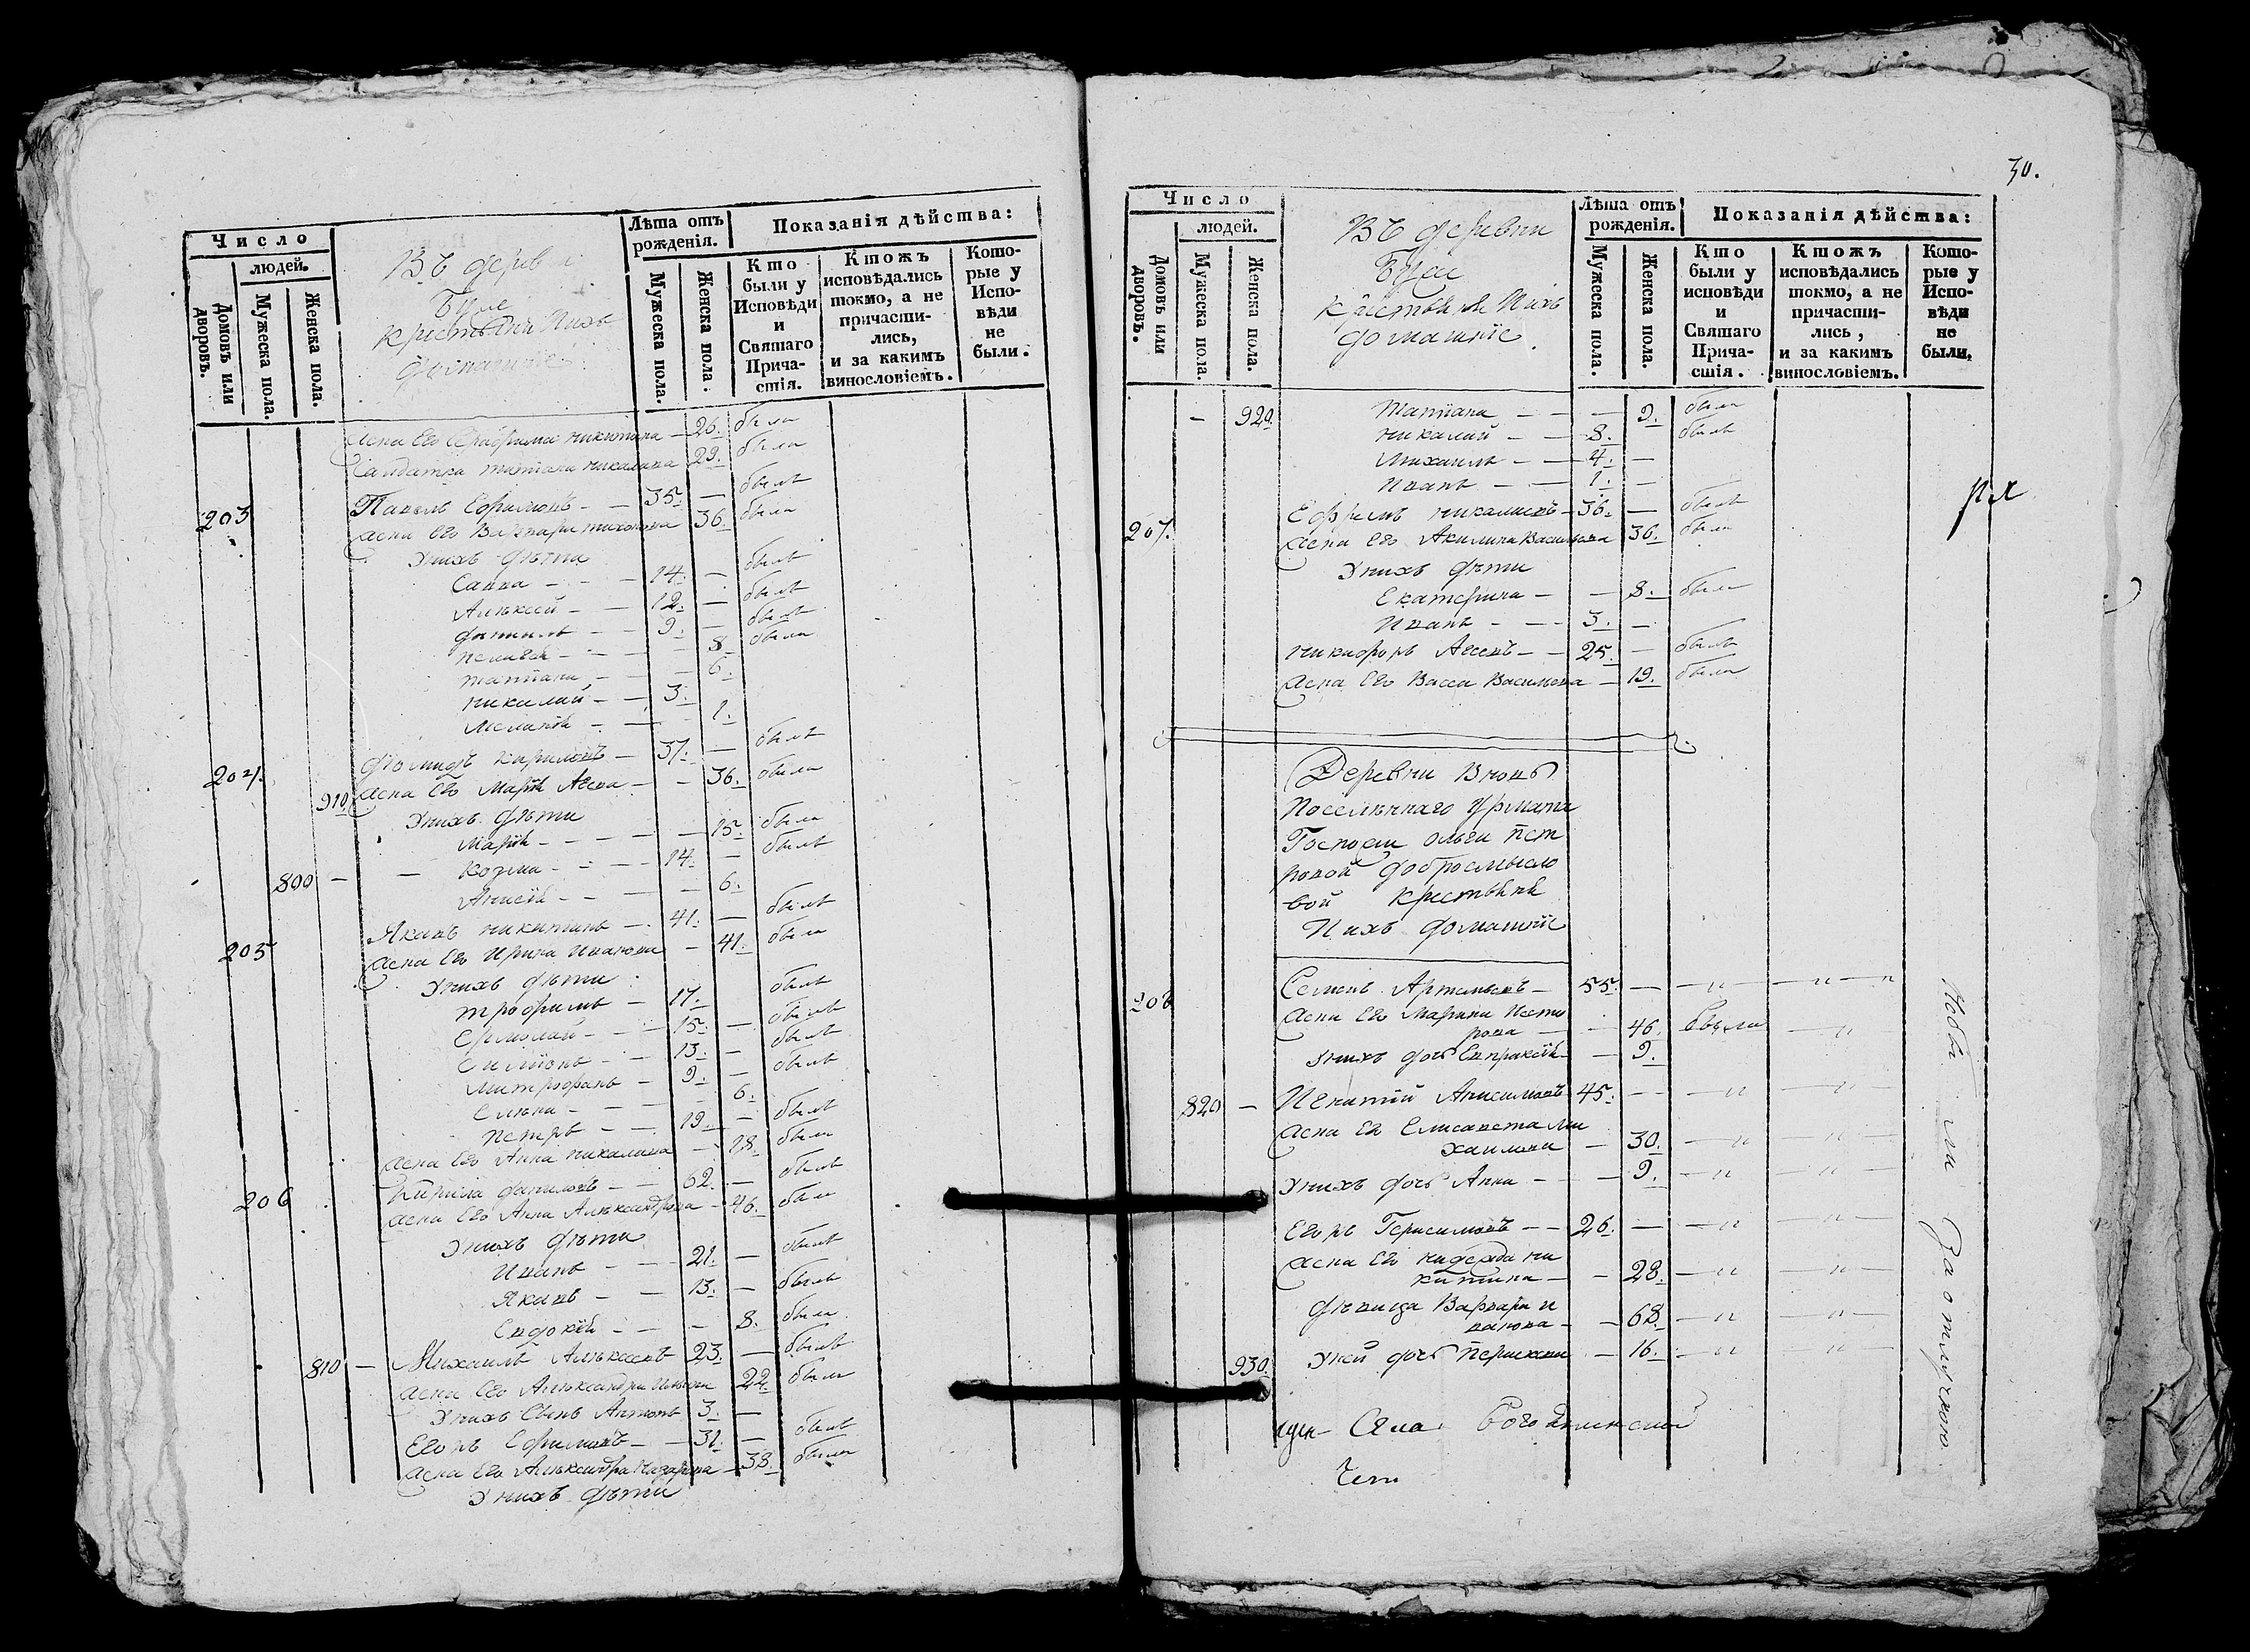 Число
людей.
Домовъ или дворовъ.
Мужеска пола.
Женска пола.
Въ дерев
Буле
крестьяни ихъ
домашніе
Лѣта отъ рожденія.
Мужеска пола.
Женска пола.
Показанія дѣйства:
Кто были у Исповѣди и Святаго Причастія.
Ктожъ исповѣдались токмо, а не причастились, и за какимъ винословіемъ.
Которые у Исповѣди не были.
жена его никитина — 26. была
татиана николаева 29. была
203 Павелъ Ефимовъ — 35. — былъ
жена его Варвара тихонова 36. была
Унихъ дѣти
Савва — 14. — былъ
Алѣксей — 12. — былъ
данилъ — 9. — былъ
8. была
татиана — 6.
николай — 3.
1.
204. кириловъ — 37. — былъ
910 жена его — 36. была
Унихъ дѣти
— 15. была
800 — Козма — 14. — былъ
6.
205 Яковъ никитинъ — 41. — былъ
жена его Ирина Иванова — 41. была
Унихъ дѣти
трофимъ — 17. былъ
Ермолай — 15. — былъ
Симионъ — 13. — былъ
митрофанъ — 9. — былъ
Елѣна — 6.
петръ — 19. — былъ
жена его Анна николаева — 18. была
206 Кирила даниловъ — 62. — былъ
жена его Анна Алѣксандрова — 46. была
Унихъ дѣти
Иванъ — 21. — былъ
Яковъ — 13. — былъ
Евдокіѣ — 8. была
810 — Михаилъ Алѣксеевъ 23. — былъ
жена его Алѣксандра 22. была
Унихъ Сынъ Антонъ 3. —
Егоръ Ефимовъ — 31. — былъ
жена его Алѣксандра Назарова — 38. была
Унихъ дѣти
30.
Число
людей.
Домовъ или дворовъ.
Мужеска пола.
Женска пола.
Въ деревни
Буле
крестьяни ихъ
домашніе.
Лѣта отъ рожденія.
Мужеска пола.
Женска пола.
Показанія дѣйства:
Кто были у исповѣди и Святаго Причастія.
Ктожъ исповѣдались токмо, а не причастились, и за какимъ винословіемъ.
Которые у Исповѣди не были.
— 920. татиана — — 9. была
николай — 8. былъ
михаилъ — 4. —
Иванъ — 1. —
207. Ефремъ николаевъ — 36. — былъ
жена его Акилина Васильева 36. была
Унихъ дѣти
Екатерина — — 8. была
Иванъ — 3. —
никифоръ — 25. — былъ
жена его Васса Васильева — 19. была
Деревни Вновь
поселѣннаго
Госпожи Ольги пет
ровой добросмысло
вой крестьяне
Ихъ домашніе
208 Семенъ Артемьевъ — 55. — — „ — — „ — „
жена его Марина Пет
рова — — 46. — „
Унихъ дочь Евпраксіѣ — 9.
820 — Игнатій Анисимовъ 45. — — „ — „
жена его Елисавета ми
хаилова — 30. — „ — „
Унихъ дочь Анна — — 9. — „ — „
Егоръ Герасимовъ — 26. — — „ — „
жена его надежда ни
китина — — 28. — „ — „
дѣвица Варвара и
ванова — — 68. — „ — „
930. Уней дочь — 16. — „ — „
За отлучкою.